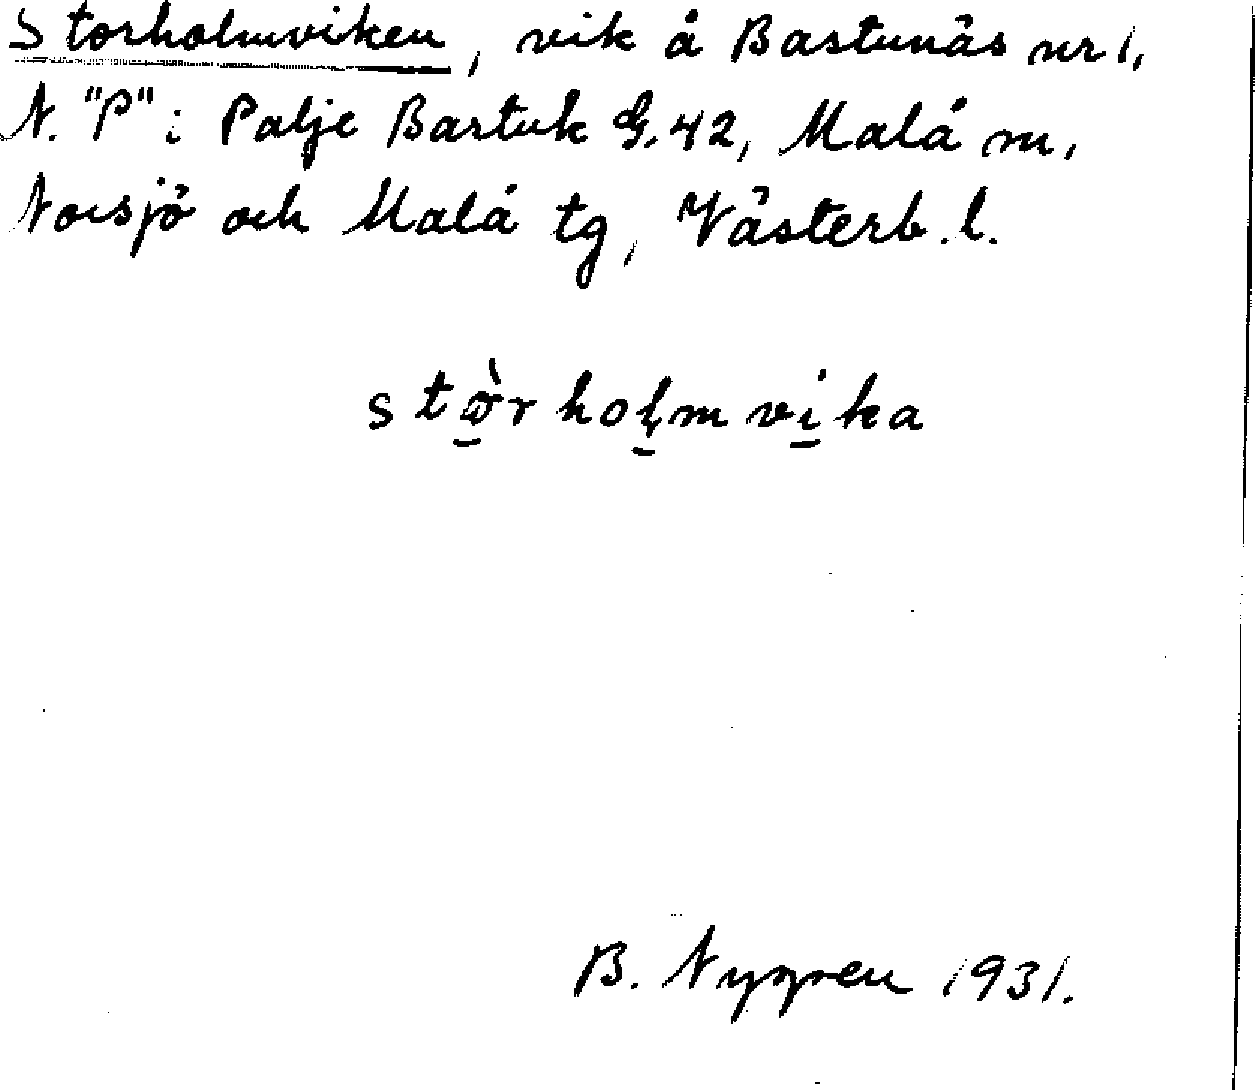 Storholmviken, vik å Bastunäs nr 1,
N. "P" i Palje Bastuk G. 42, Malå sn,
Norsjö och Malå tg, Västerb. l.
stòrholmvika
B. Nygren 1931.